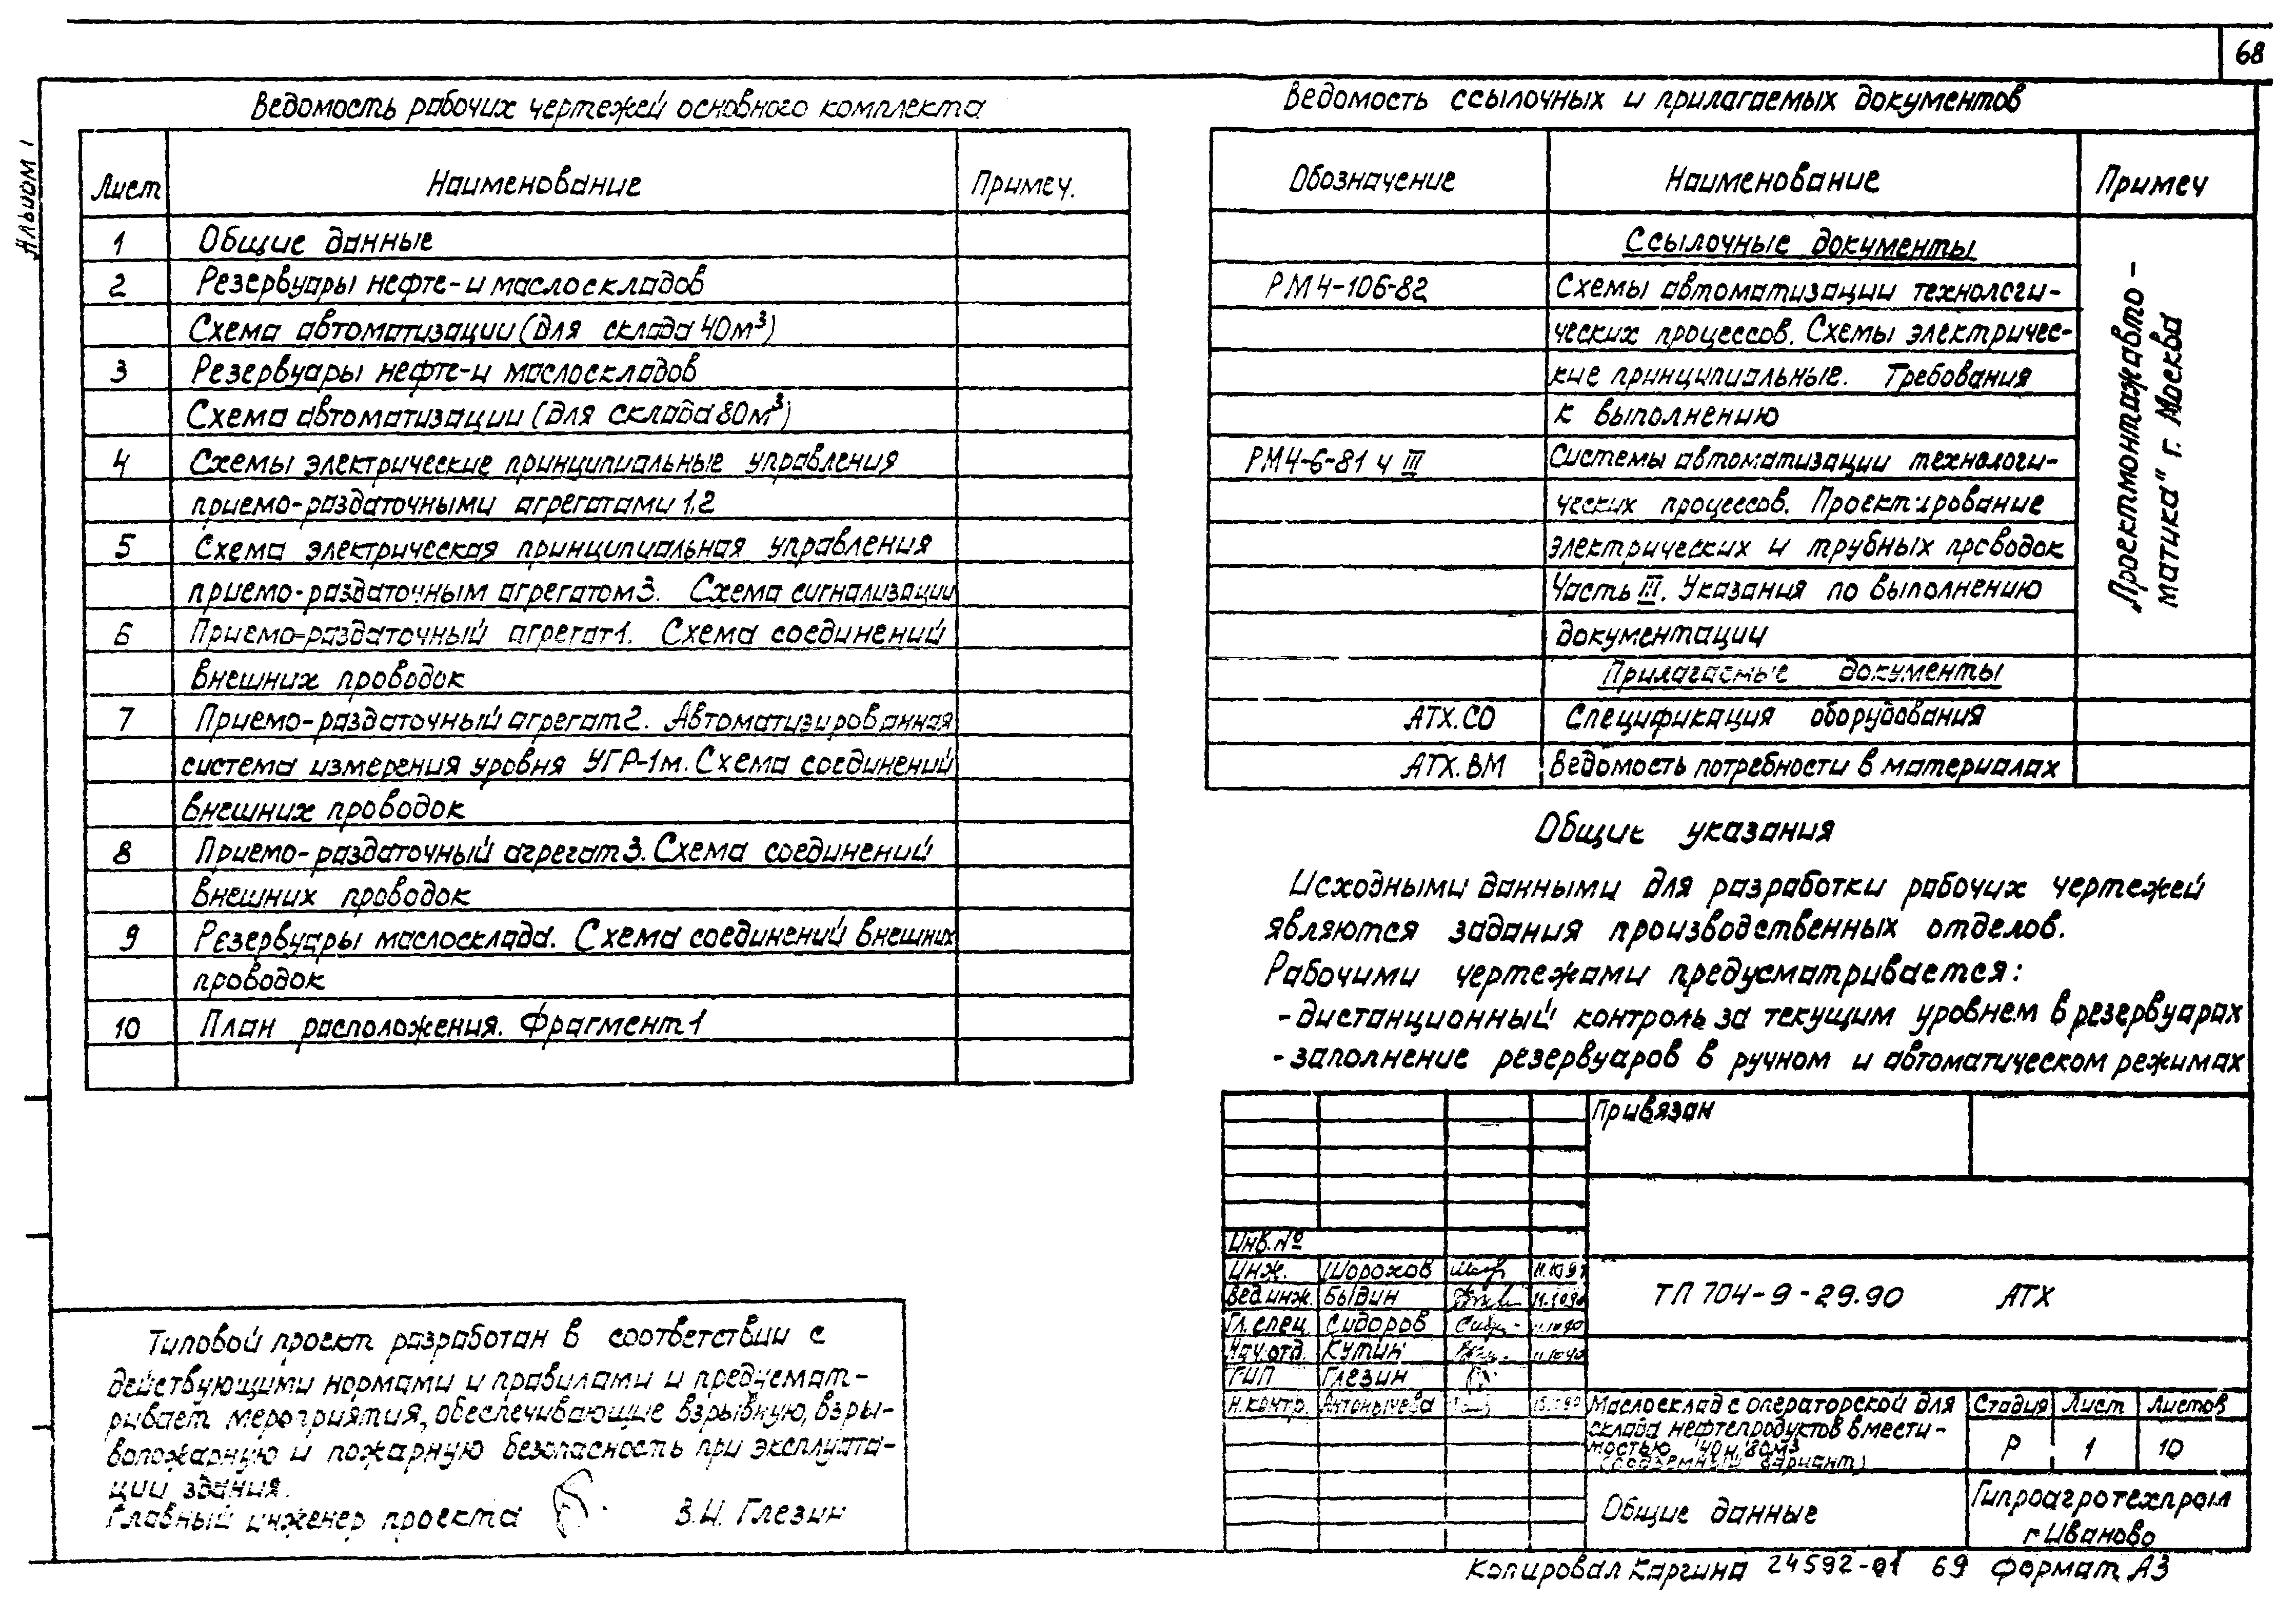 68
Альбом 1
Ведомость рабочих чертежей основного комплекта
Лист Наименование Примеч.
1 Общие данные
2 Резервуары нефте-и маслоскладов
Схема автоматизации (для склада 40м³)
3 Резервуары нефте-и маслоскладов
Схема автоматизации (для склада 80м³)
4 Схемы электрические принципиальные управления
приемо-раздаточными агрегатами 1,2
5 Схема электрическая принципиальная управления
приемо-раздаточным агрегатом 3. Схема сигнализации
6 Приемо-раздаточный агрегат 1. Схема соединений
внешних проводок
7 Приемо-раздаточный агрегат 2. Автоматизированная
система измерения уровня УГР-1м. Схема соединений
внешних проводок
8 Приемо-раздаточный агрегат 3. Схема соединений
внешних проводок
9 Резервуары маслосклада. Схема соединений внешних
проводок
10 План расположения. Фрагмент 1
Ведомость ссылочных и прилагаемых документов
Обозначение Наименование Примеч
Ссылочные документы
РМ4-106-82 Схемы автоматизации технологи-
ческих процессов. Схемы электричес-
кие принципиальные. Требования
к выполнению
РМ4-6-81 ч III Системы автоматизации технологи-
ческих процессов. Проектирование
электрических и трубных проводок
Часть III. Указания по выполнению
документации
Проектмонтажавто-
матика" г. Москва
Прилагаемые документы
АТХ.СО Спецификация оборудования
АТХ.ВМ Ведомость потребности в материалах
Общие указания
Исходными данными для разработки рабочих чертежей
являются задания производственных отделов.
Рабочими чертежами предусматривается:
-дистанционный контроль за текущим уровнем в резервуарах
-заполнение резервуаров в ручном и автоматическом режимах
Типовой проект разработан в соответствии с
действующими нормами и правилами и предусмат-
ривает мероприятия, обеспечивающие взрывную, взры-
вопожарную и пожарную безопасность при эксплуата-
ции здания.
Главный инженер проекта З.И. Глезин
Привязан
Инв. №
Инж. Шорохов
Вед.инж. Быдин
Гл. спец. Сидоров
Нач.отд. Кутин
ГИП Глезин
Н.контр. Антонычева
ТП 704-9-29.90 АТХ
Маслосклад с операторской для
склада нефтепродуктов вмести-
мостью 40 и 80м3
(подземный вариант)
Стадия Лист Листов
Р 1 10
Общие данные
Гипроагротехпром
г. Иваново
Копировал Каргина 24592-01 69 Формат А3